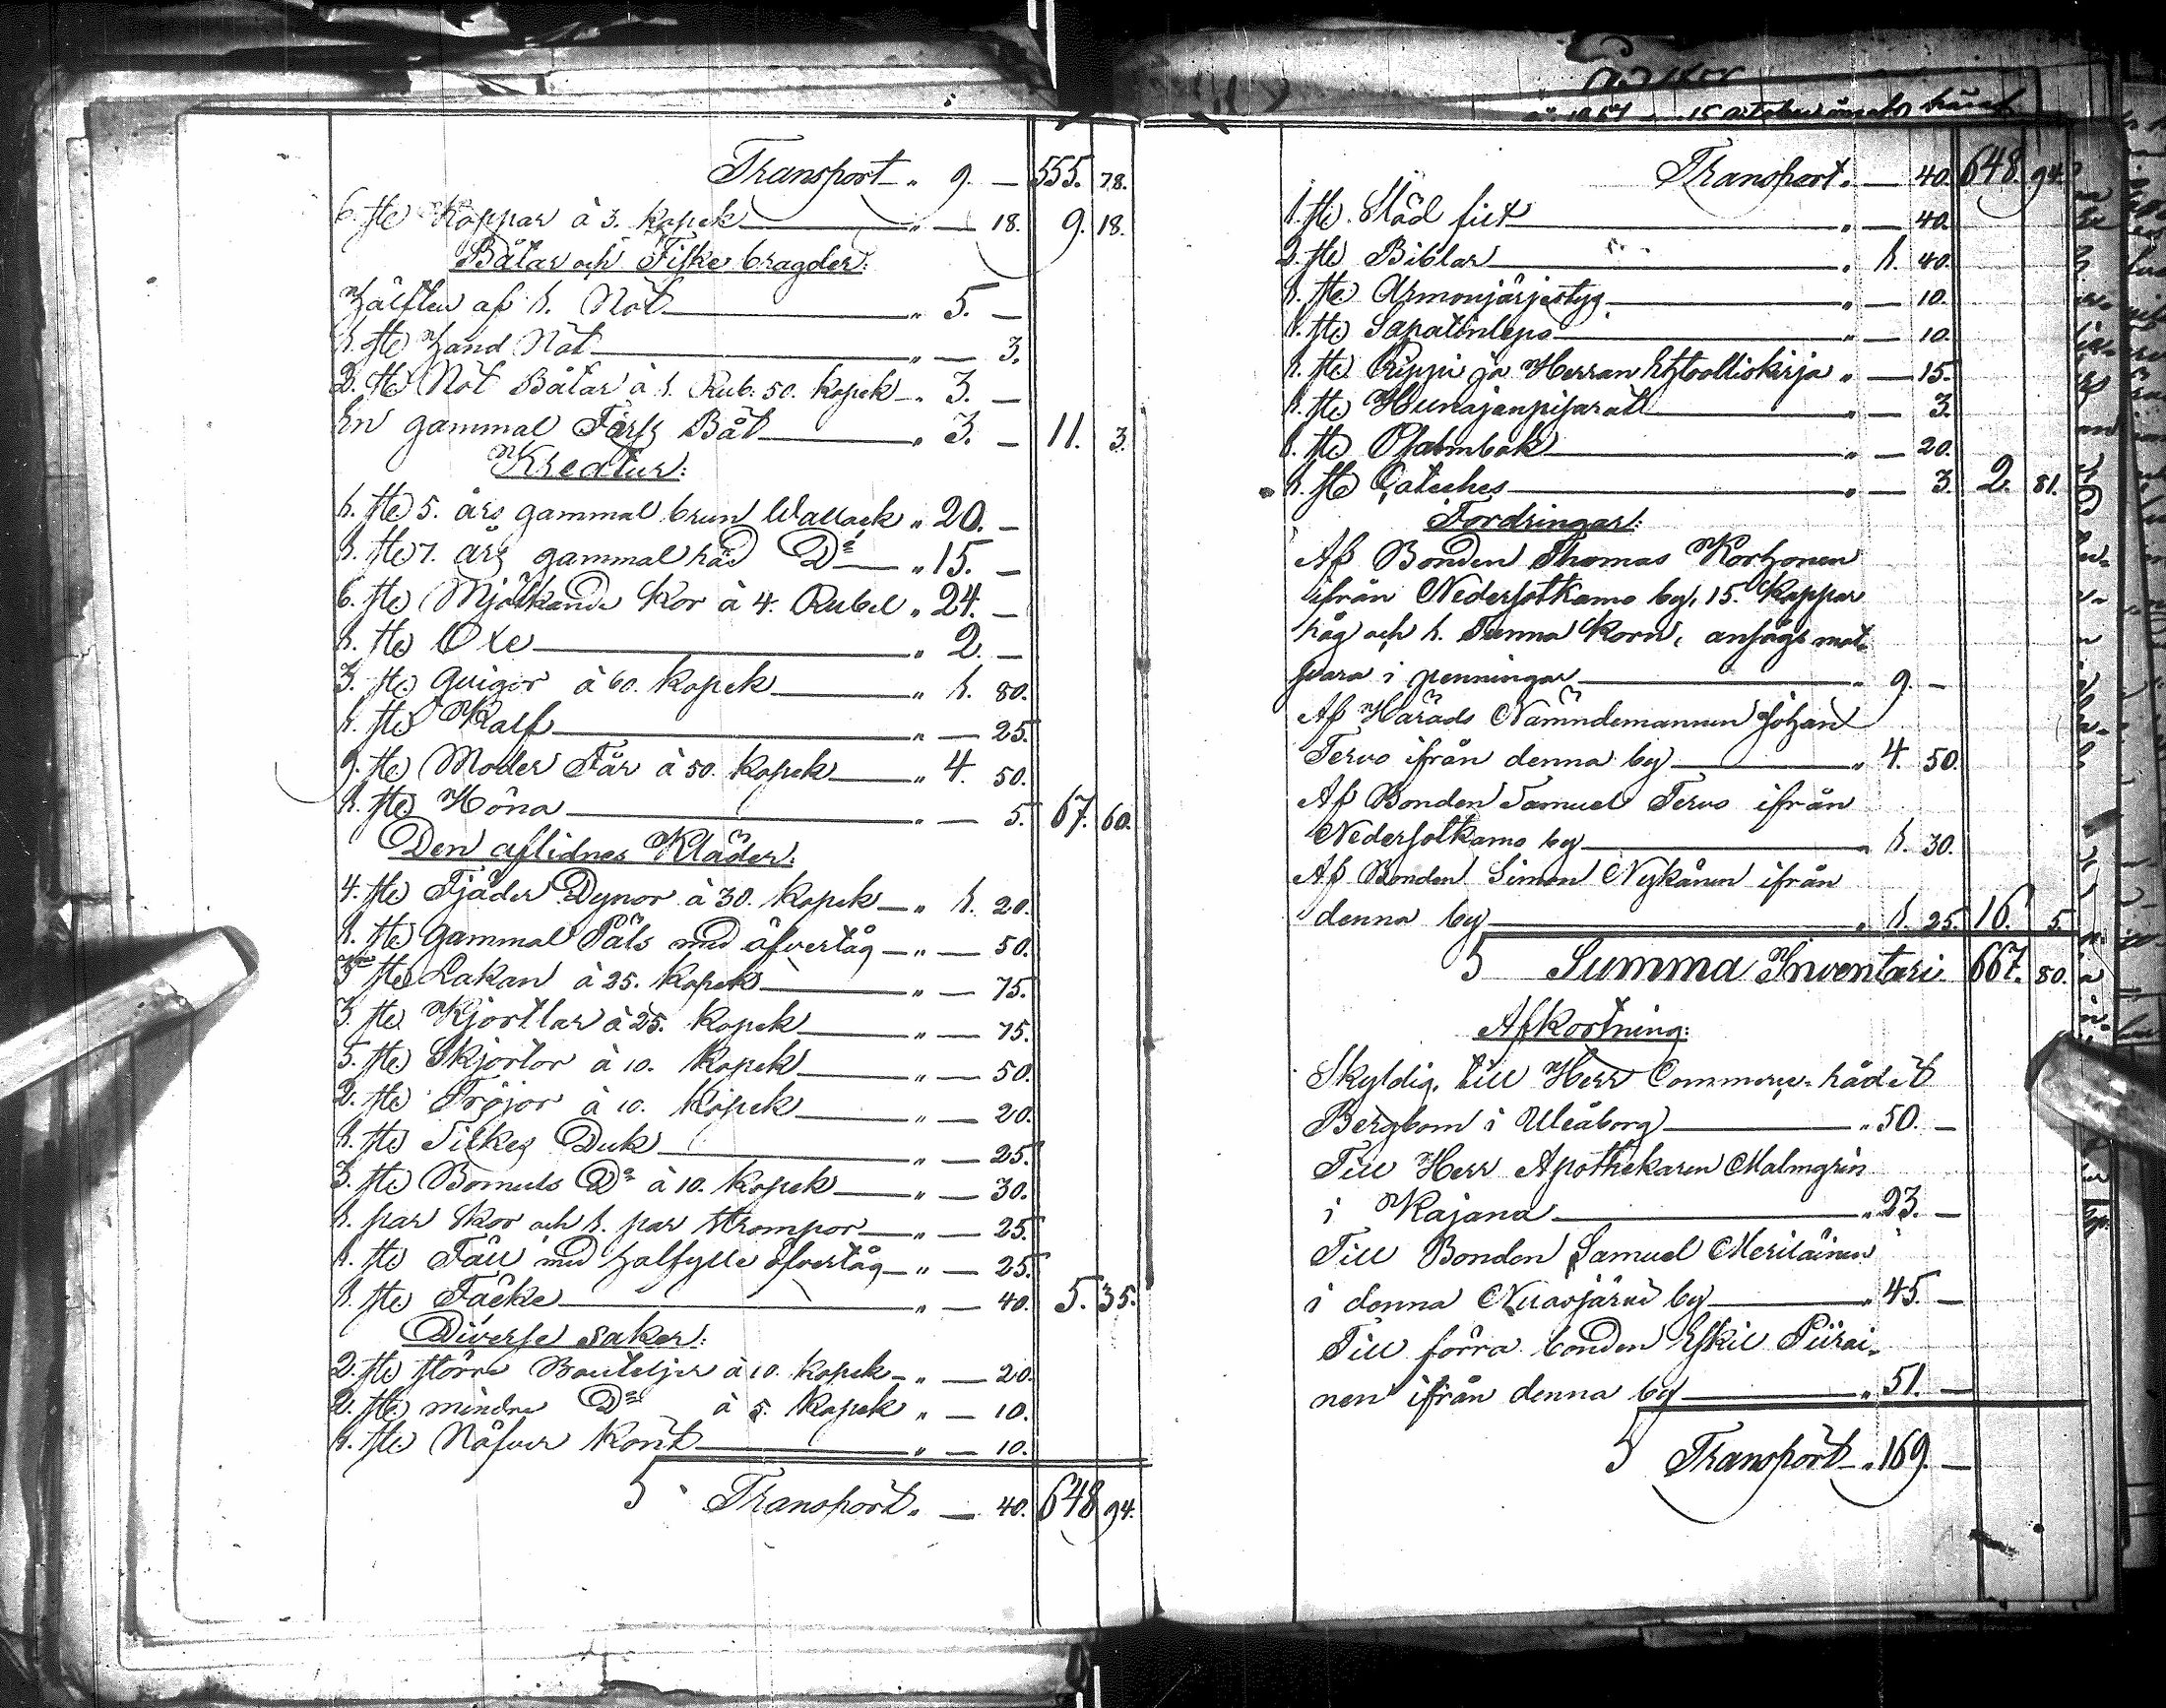 Transport " 9. — 555. 78.
6. st. Kappar à 3. kopek " — 18. 9. 18.
Båtar och Fiske bragder:
Hälften af 1. Nöt " 5. —
1. st. Hand Nöt " — 3.
2. st. Nöt Båtar à 1. Rub. 50. kopek " 3. —
En gammal Färss Båt " 3. — 11. 3.
Kreatur:
1. st. 5. års gammal brun Wallack " 20. —
1. st. 7. års gammal röd Do " 15. —
6. st. Mjölkande Kor à 4. Rubel " 24. —
1. st. Oxe " 2. —
3. st. Qvigor à 60. kopek " 1. 80.
1. st. Kalf " — 25.
9. st. Moder Får à 50. kopek " 4. 50.
1. st. Höna " — 5. 67. 60.
Den aflidnes Kläder:
4. st. Fjäder Dynor à 30. kopek " 1. 20.
1. st. gammal Päls med öfvertåg " — 50.
3 st. Lakan à 25. kopek " — 75.
3. st. Kjortlar à 25. kopek " — 75.
5. st. Skjortor à 10. kopek " — 50.
2. st. Tröjor à 10. kopek " — 20.
1. st. Silkes Duk " — 25.
3. st. Bomuls Do à 10. kopek " — 30.
1. par Skor och 1. par strömpor " — 25.
1. st. Fäll med halfylle öfvertåg " — 25.
1. st. Täcke " — 40. 5. 35.
Diverse saker:
2. st. större Bouteljer à 10. kopek " — 20.
2. st. mindre Do à 5. kopek " — 10.
1. st. Näfver Kont " — 10.
Transport " — 40. 648 94.
Transport " — 40. 648. 94.
1. st. Städ " — 40.
2. st. Biblar " 1. 40.
1. st. Armonjärjestys " — 10.
1. st. " — 10.
1. st. Rippi ja Herran Ehtoolliskirja " — 15.
1. st. Hunajanpisarat " — 3.
1. st. Psalmbok " — 20.
1. st. Cateches " — 3. 2. 81.
Fordringar:
Af Bonden Thomas Korhonen
ifrån Nedersotkamo by, 15. Kappar
råg och 1. Tunna Korn, ansågs mot
svara i penningar " 9. —
Af Härads Nämndemannen Johan
Tervo ifrån denna by " 4. 50.
Af Bonden Samuel Tervo ifrån
Nedersotkamo by " 1. 30.
Af Bonden Simon Nykänen ifrån
denna by " 1. 25. 16. 5.
Summa Inventari 667. 80.
Afkortning:
Skyldig, till Herr Commerce-rådet
Bergbom i Uleåborg " 50. —
Till Herr Apothekaren Malmgrén
i Kajana " 23. —
Till Bonden Samuel Meriläinen
i denna Nuasjärvi by " 45. —
Till förra bonden Eskil Piirai-
nen ifrån denna by " 51. —
Transport " 169. —